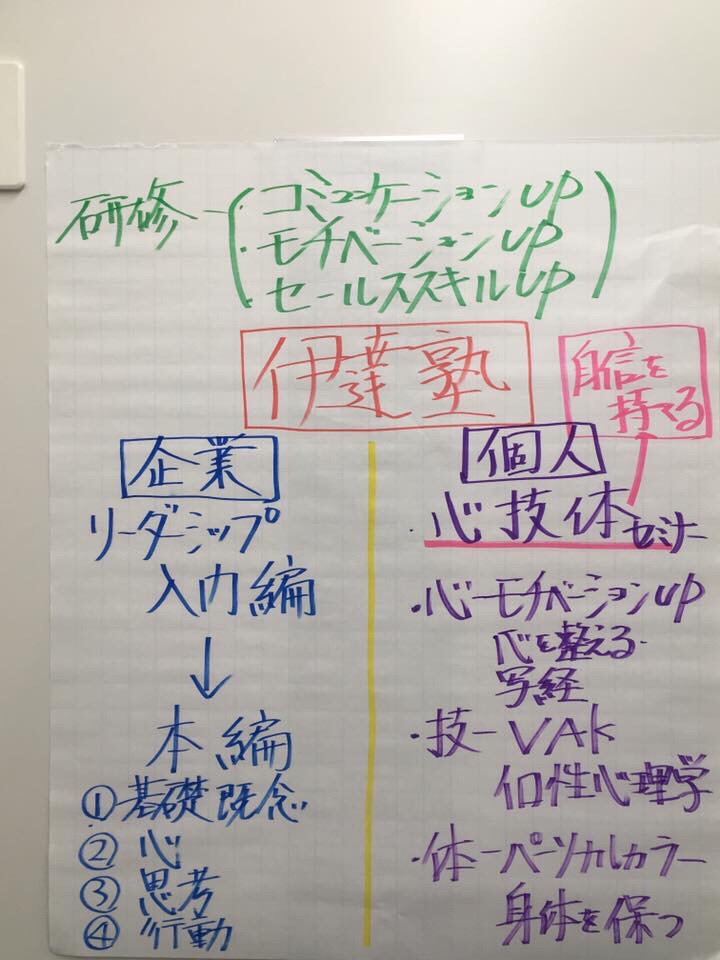 研修 ・コミュニケーションUP
・モチベーションUP
・セールススキルUP
伊達塾
自信を
持てる
企業
リーダーシップ
入内編
↓
本編
①基礎既念
②心
③思考
④行動
個人
・心技体セミナー
・心-モチベーションUP
心を整える・
写経
・技-VAK
個性心理学
・体-パーソナルカラー
身体を保つ